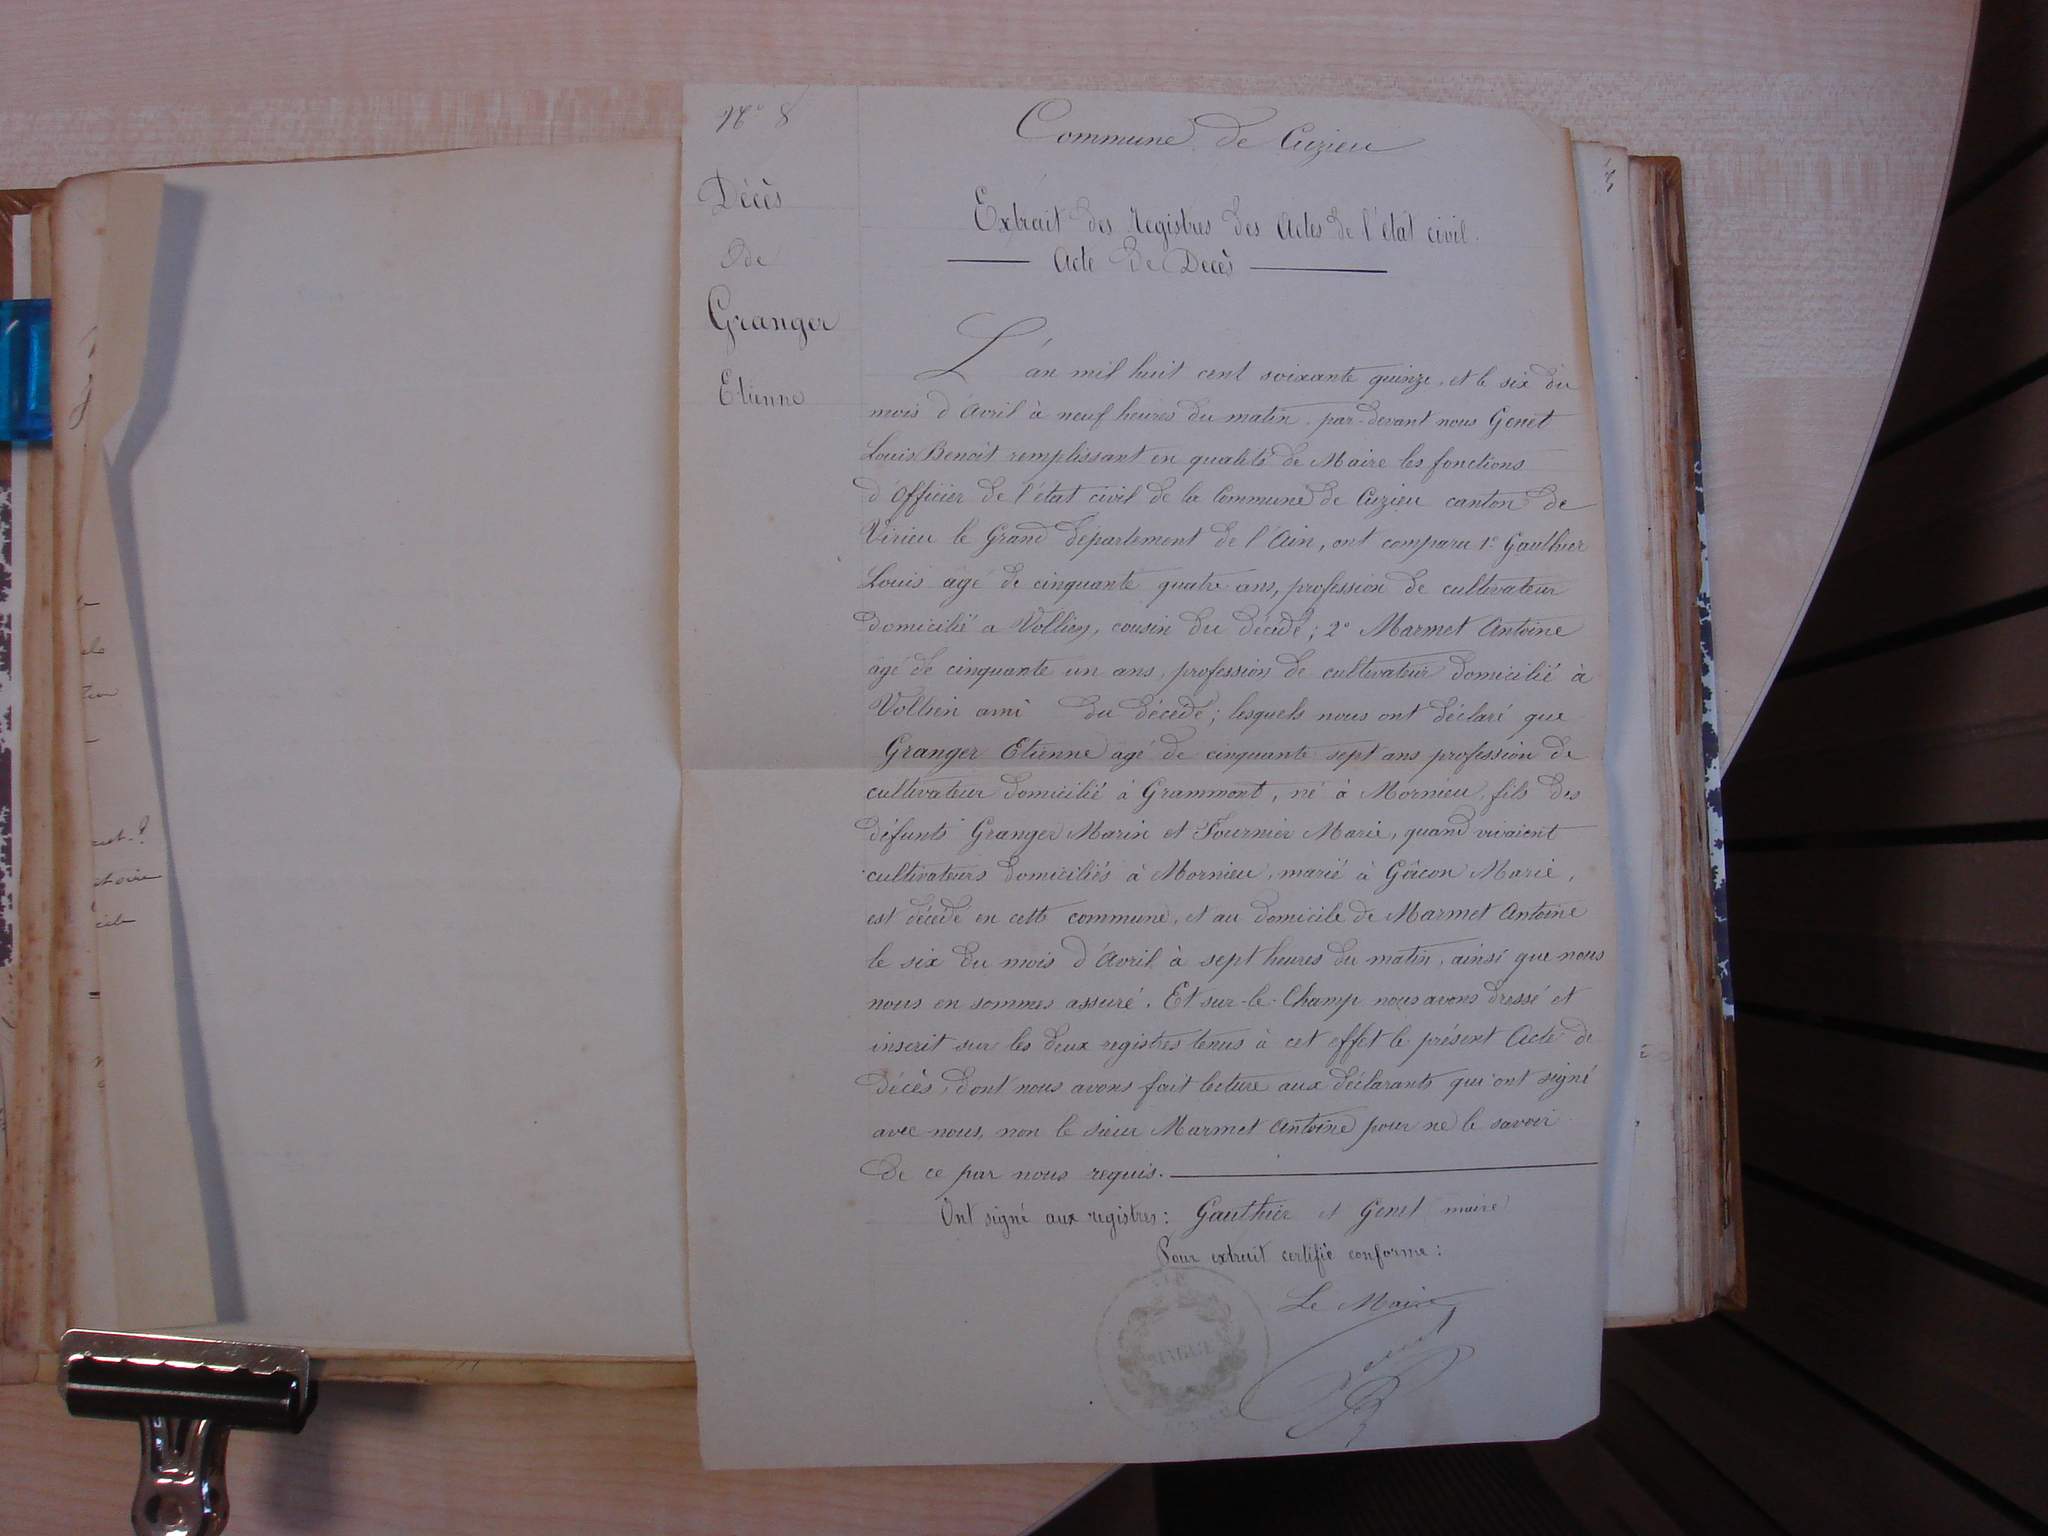 N° 8
Décès
de
Granger
Etienne
Commune de Cuzieu
Extrait des registres des Actes de l'état civil.
Acte de Decès
L'an mil huit cent soixante quinze, et le six du
mois d'Avril à neuf heures du matin, par-devant nous Genet
Louis Benoit remplissant en qualité de Maire les fonctions
d'Officier de l'état civil de la Commune de Cuzieu canton de
Virieu le Grand département de l'Ain, ont comparu 1° Gauthier
Louis agé de cinquante quatre ans, profession de cultivateur
domicilié a Vollien, cousin du décédé; 2° Marmet Antoine
agé de cinquante un ans, profession de cultivateur domicilié à
Vollien ami du décédé; lesquels nous ont déclaré que
Granger Etienne agé de cinquante sept ans profession de
cultivateur domicilié à Grammont, né à Mornieu, fils des
défunts Granger Marin et Fournier Marie, quand vivaient
cultivateurs domiciliés à Mornieu, marié à Gâcon Marie,
est décédé en cette commune, et au domicile de Marmet Antoine
le six du mois d'Avril à sept heures du matin, ainsi que nous
nous en sommes assuré. Et sur-le-Champ nous avons dressé et
inscrit sur les deux registres tenus à cet effet le présent Acte de
décès, dont nous avons fait lecture aux déclarants qui ont signé
avec nous, non le sieur Marmet Antoine pour ne le savoir
de ce par nous requis.
Ont signé aux registres: Gauthier et Genet maire
Pour extrait certifié conforme:
Le Maire